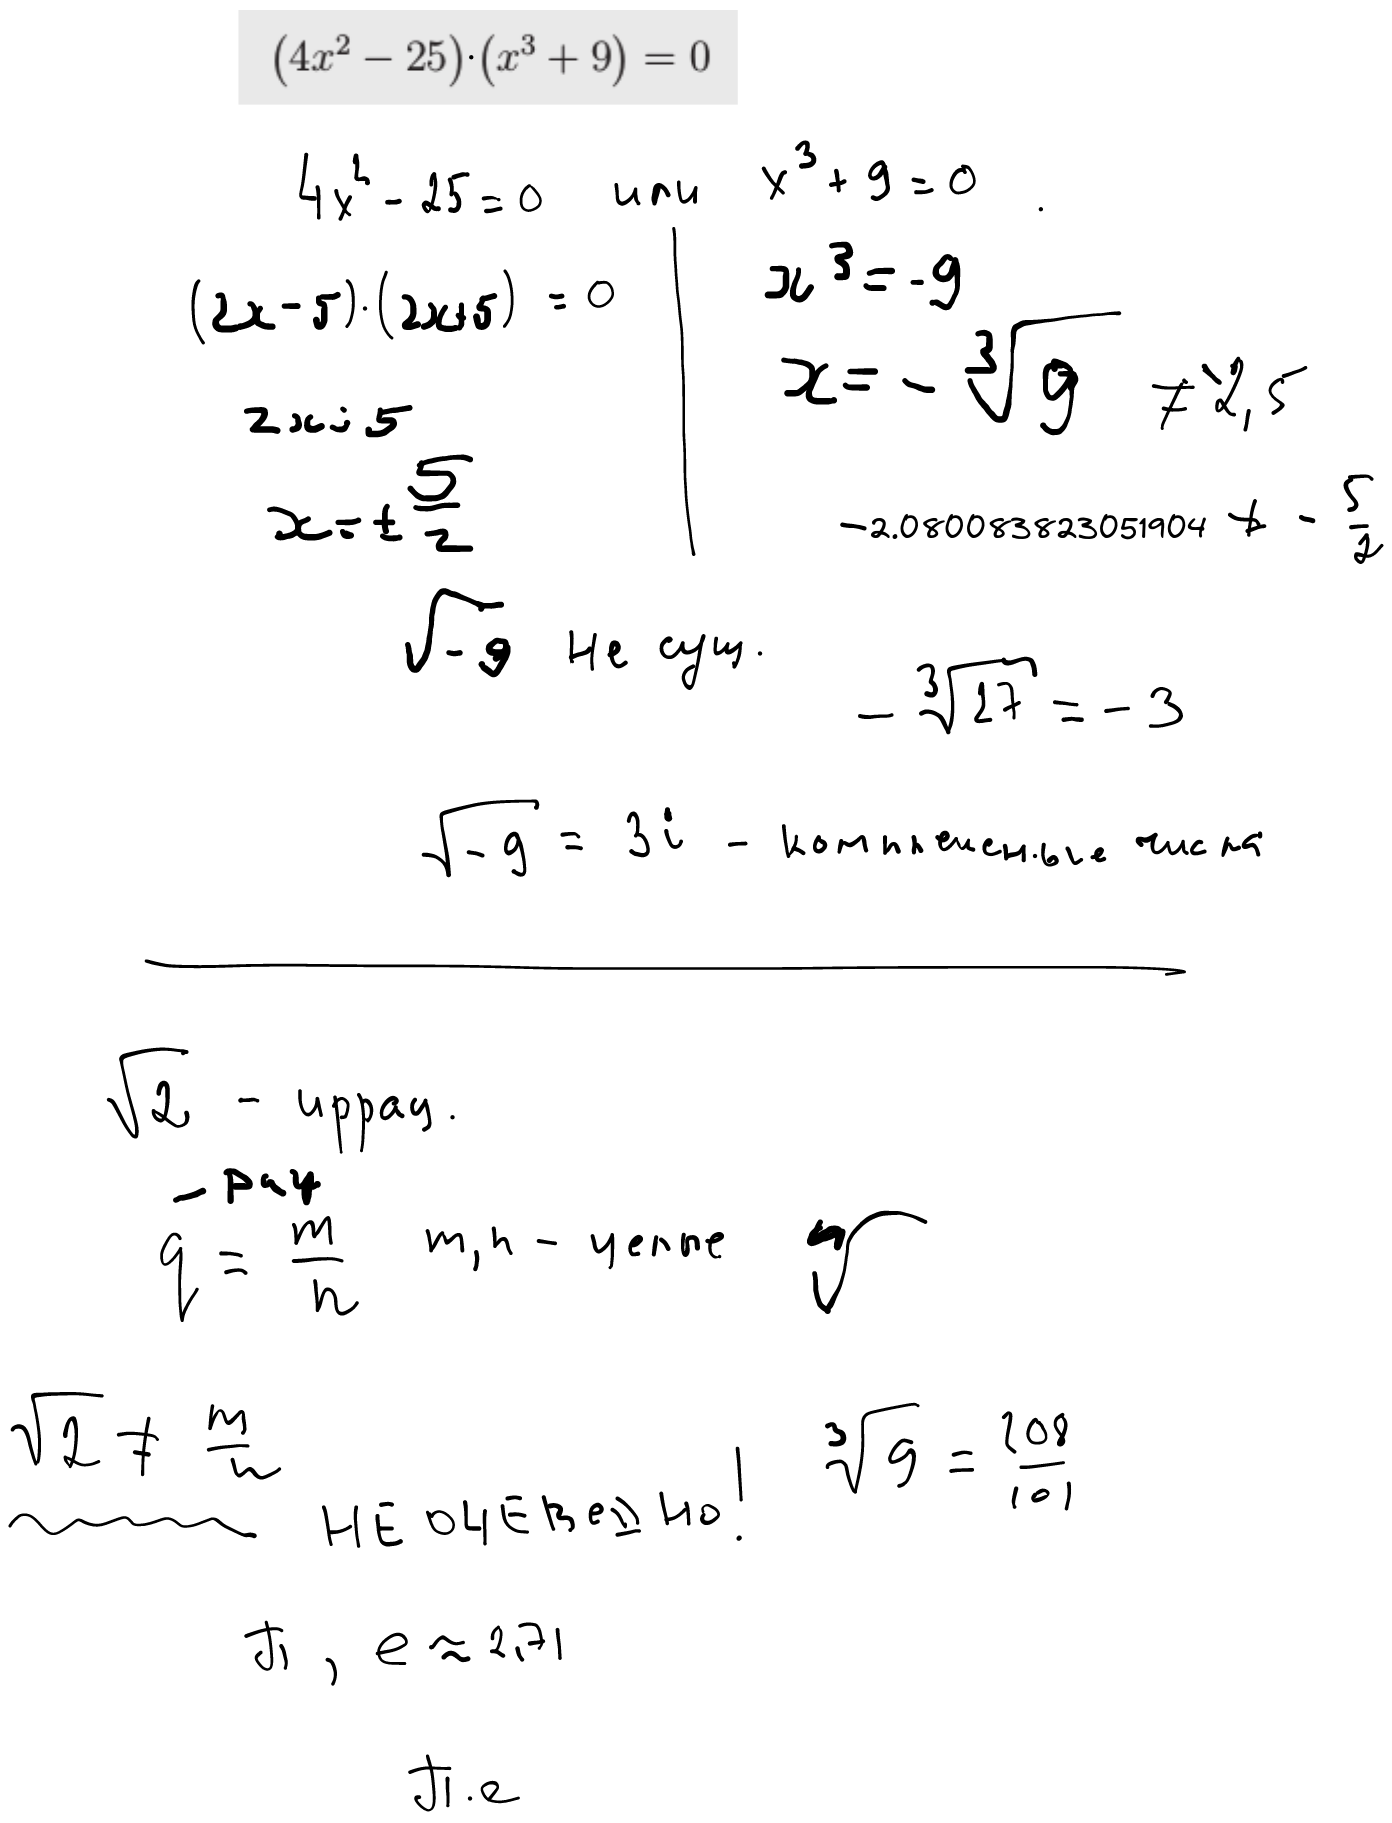 (4x² − 25)·(x³ + 9) = 0
4x² - 25 = 0 или x³ + 9 = 0
(2x-5)·(2x+5) = 0
x³ = -9
x = - ∛9 ≠ -2,5
2x = 5
x = ± 5/2
-2.080083823051904 ≠ - 5/2
√-9 Не сущ.
- ∛27 = - 3
√-9 = 3i - комплексные числа
√2 - иррац.
- рац
q = m/n m,n - целые
√2 ≠ m/n
∛9 = 208/101
НЕ ОЧЕВидно!
π, e ≈ 2,71
π·e